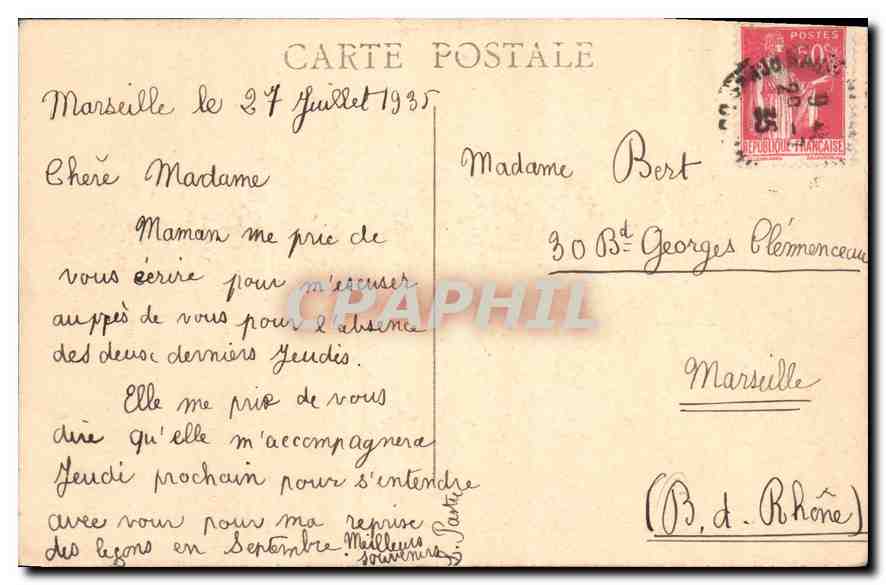 CARTE POSTALE
Marseille le 27 Juillet 1935
Chère Madame
Maman me prie de
vous écrire pour m'escuser
auppès de vous pour l'absence
des deux derniers Jeudis.
Elle me prie de vous
dire qu'elle m'accompagnera
Jeudi prochain pour s'entendre
avec vour pour ma reprise
des leçons en Septembre.
Meilleurs
souvenirs
Madame Bert
30 Bd Georges Clémenceau
Marseille
(B. d. Rhône)
POSTES
50c
REPUBLIQUE FRANÇAISE
35
CPAPHIL